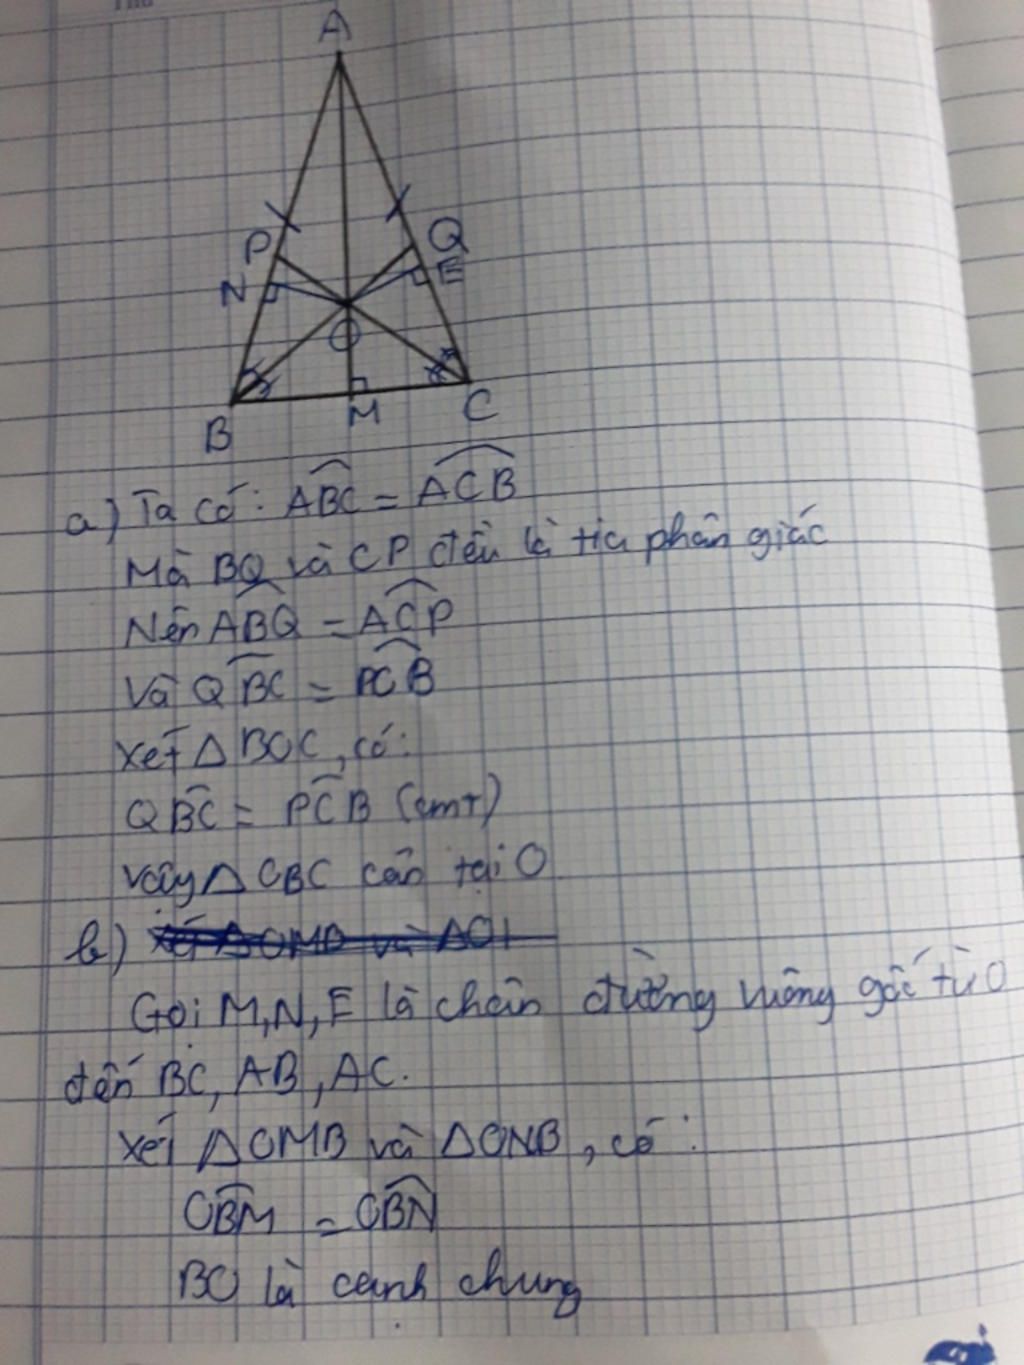 Thứ
A
P
Q
N
E
O
B
M
C
a) Ta có: ABC = ACB
Mà BQ và CP đều là tia phân giác
Nên ABQ = ACP
Và QBC = PCB
Xét △ BOC, có:
QBC = PCB (cmt)
Vậy △ OBC cân tại O
b) Xét △OMB và △O
Gọi M, N, E là chân đường vuông góc từ O
đến BC, AB, AC.
Xét △OMB và △ONB, có:
OBM = OBN
BO là cạnh chung